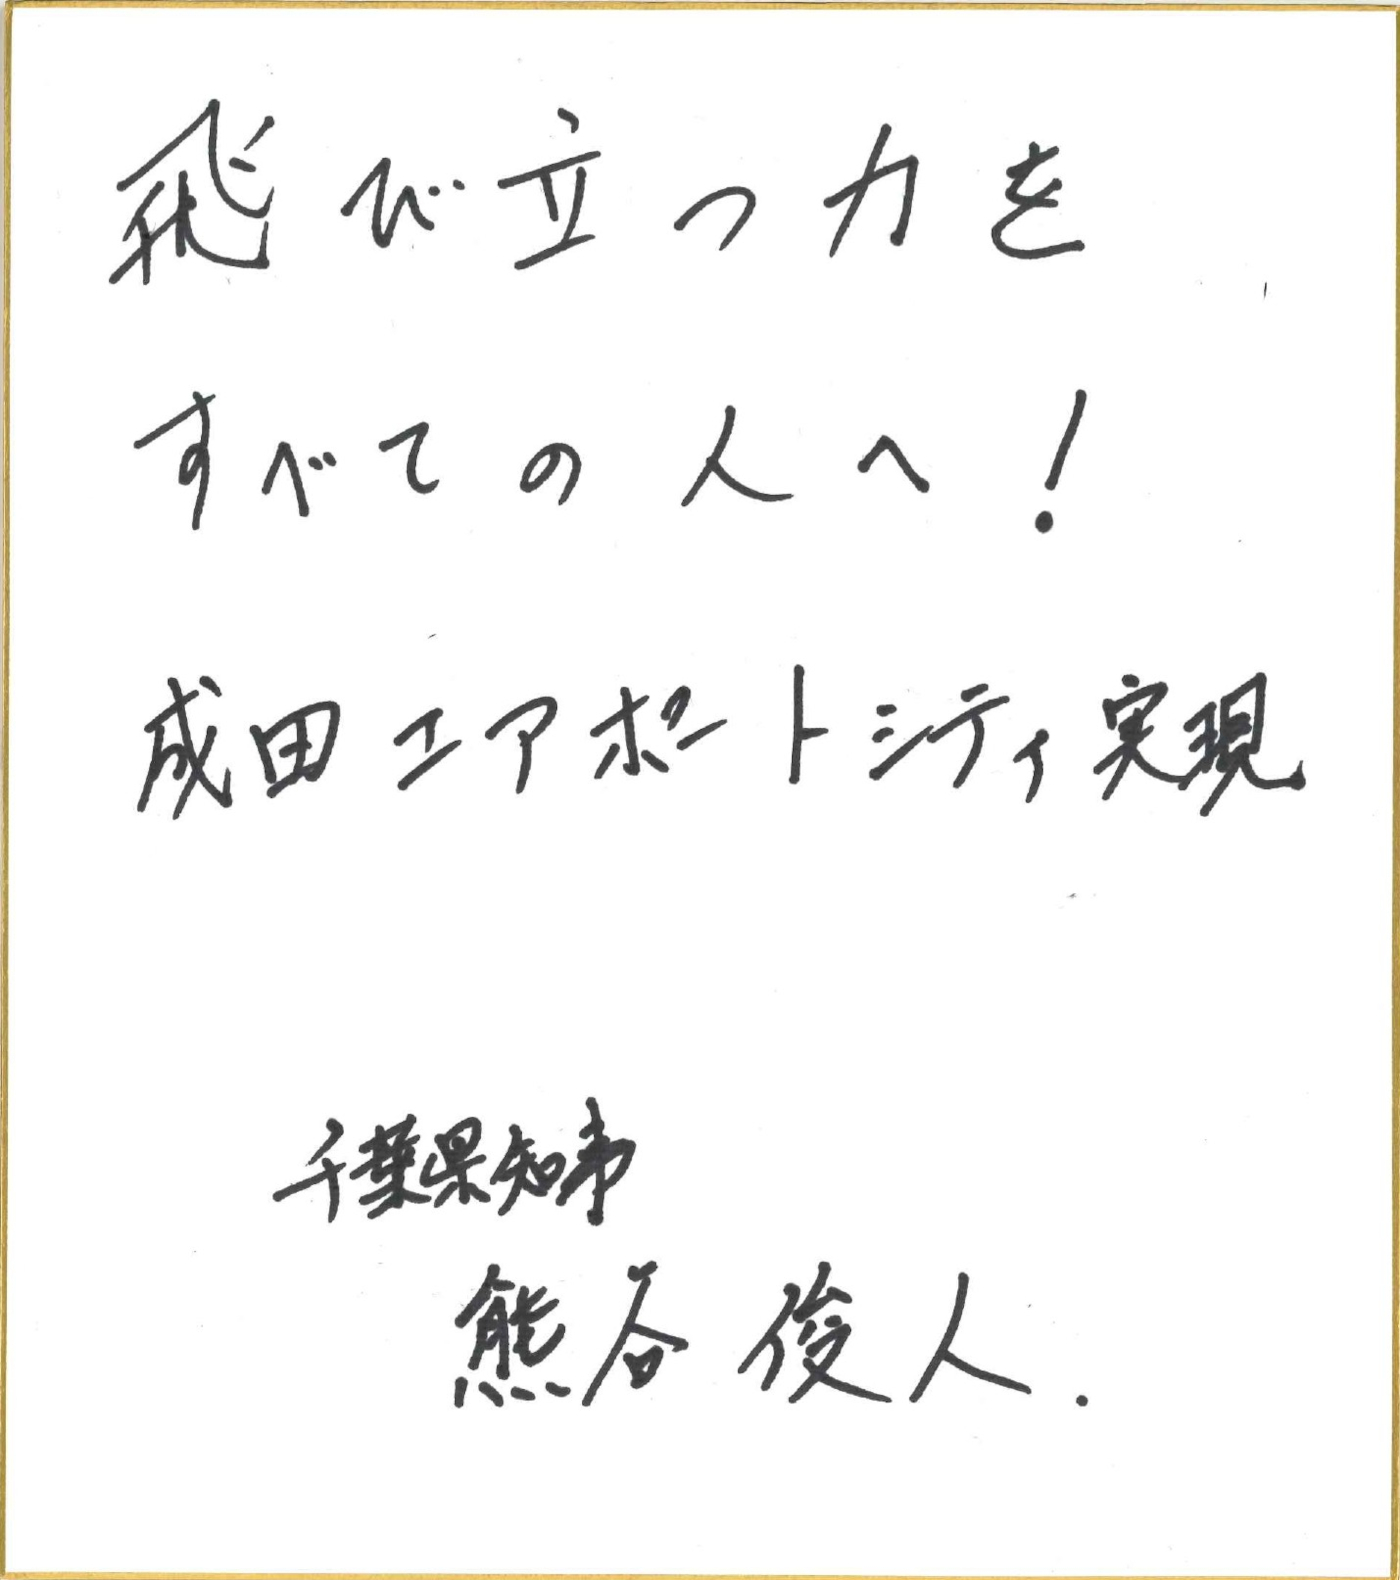 飛び立つ力を
すべての人へ!
成田エアポートシティ実現
千葉県知事
熊谷俊人.